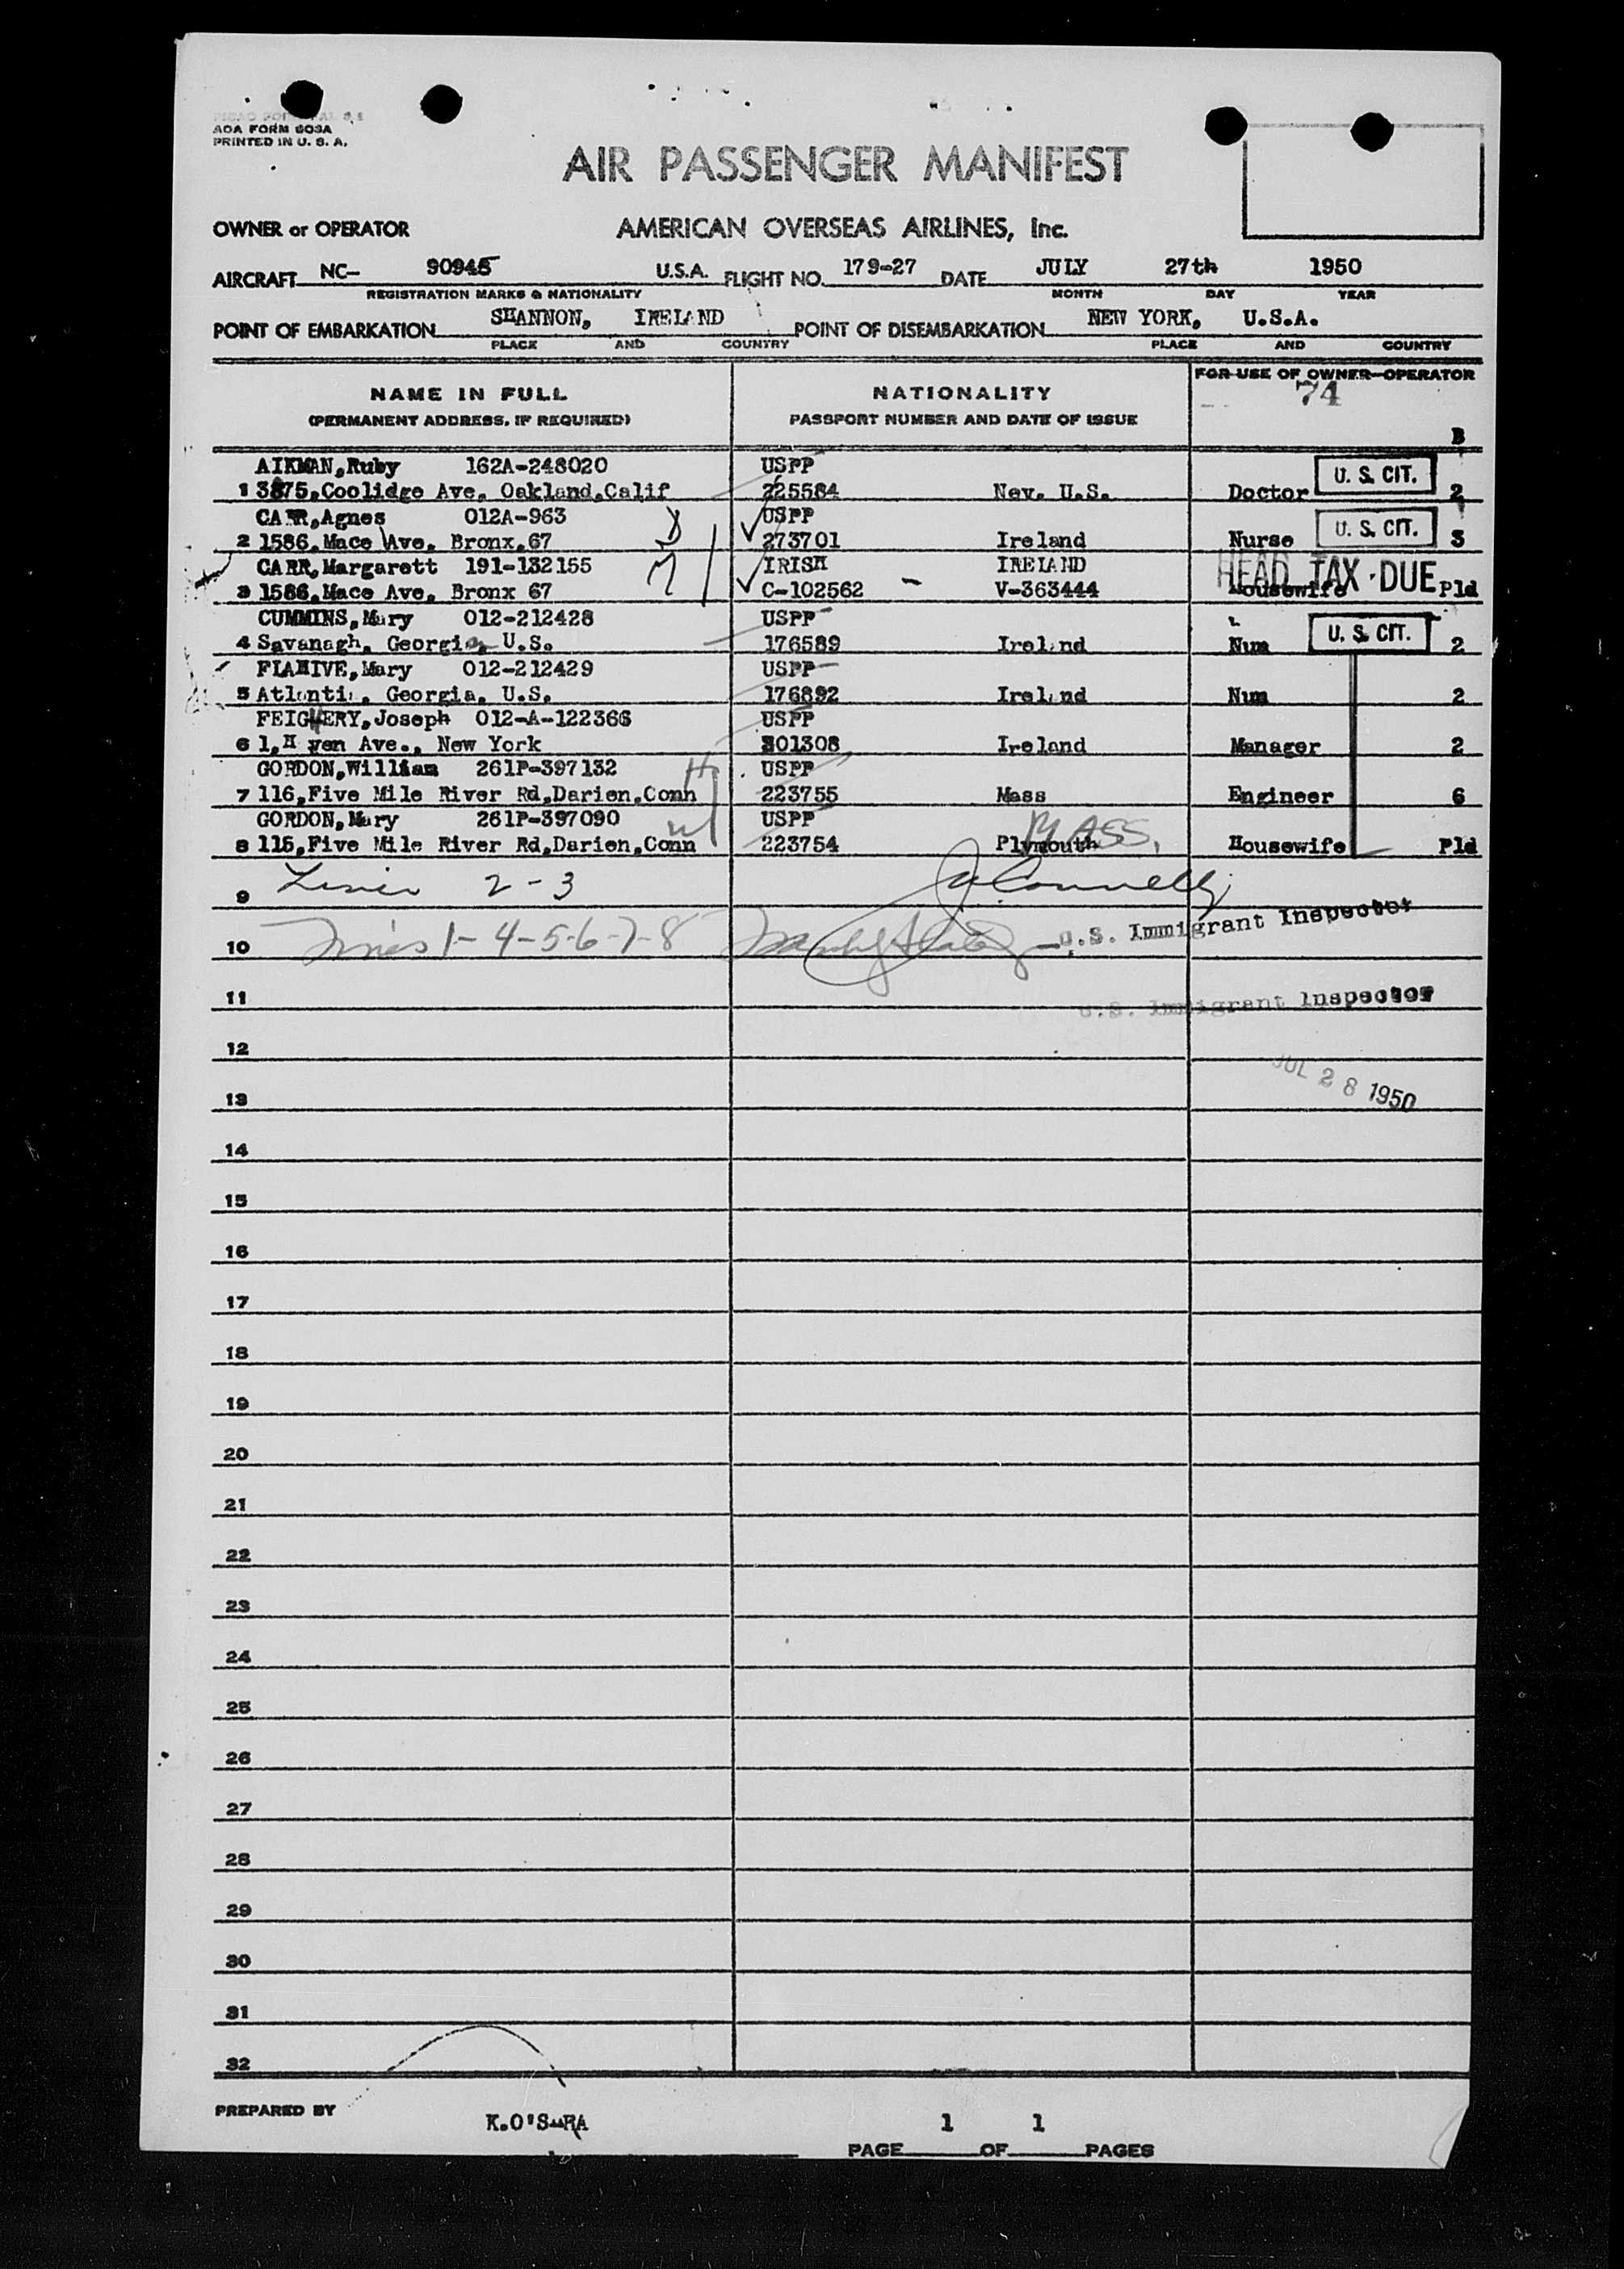 AOA FORM 603A
PRINTED IN U. S. A.
AIR PASSENGER MANIFEST
OWNER or OPERATOR AMERICAN OVERSEAS AIRLINES, Inc.
AIRCRAFT NC- 90945 U.S.A. FLIGHT NO. 179-27 DATE JULY 27th 1950
REGISTRATION MARKS & NATIONALITY MONTH DAY YEAR
POINT OF EMBARKATION SHANNON, IRELAND POINT OF DISEMBARKATION NEW YORK, U.S.A.
PLACE AND COUNTRY PLACE AND COUNTRY
NAME IN FULL NATIONALITY FOR USE OF OWNER-OPERATOR
74
(PERMANENT ADDRESS, IF REQUIRED) PASSPORT NUMBER AND DATE OF ISSUE
B
AIKMAN,Ruby 162A-248020 USPP U. S. CIT.
1 3875,Coolidge Ave, Oakland,Calif 225584 Nev. U.S. Doctor 2
CARR,Agnes 012A-963 USPP U. S. CIT.
2 1586,Mace Ave, Bronx,67 273701 Ireland Nurse 3
CARR,Margarett 191-132155 IRISH IRELAND HEAD TAX DUE
3 1586,Mace Ave, Bronx 67 C-102562 - V-363444 Housewife Pld
CUMMINS,Mary 012-212428 USPP U. S. CIT.
4 Savanagh, Georgia, U.S. 176589 Ireland Nun 2
FLAHIVE,Mary 012-212429 USPP
5 Atlanta, Georgia, U.S. 176892 Ireland Nun 2
FEIGHERY,Joseph 012-A-122366 USPP
6 1,Haven Ave., New York 301308 Ireland Manager 2
GORDON,William 261P-397132 H USPP
7 116,Five Mile River Rd,Darien,Conn 223755 Mass Engineer 6
GORDON,Mary 261P-397090 W USPP MASS.
8 115,Five Mile River Rd,Darien,Conn 223754 Plymouth Housewife Pld
9 2-3
U.S. Immigrant Inspector
10 1-4-5-6-7-8
11 U.S. Immigrant Inspector
12
JUL 28 1950
13
14
15
16
17
18
19
20
21
22
23
24
25
26
27
28
29
30
31
32
PREPARED BY K.O'S
1 1
PAGE OF PAGES